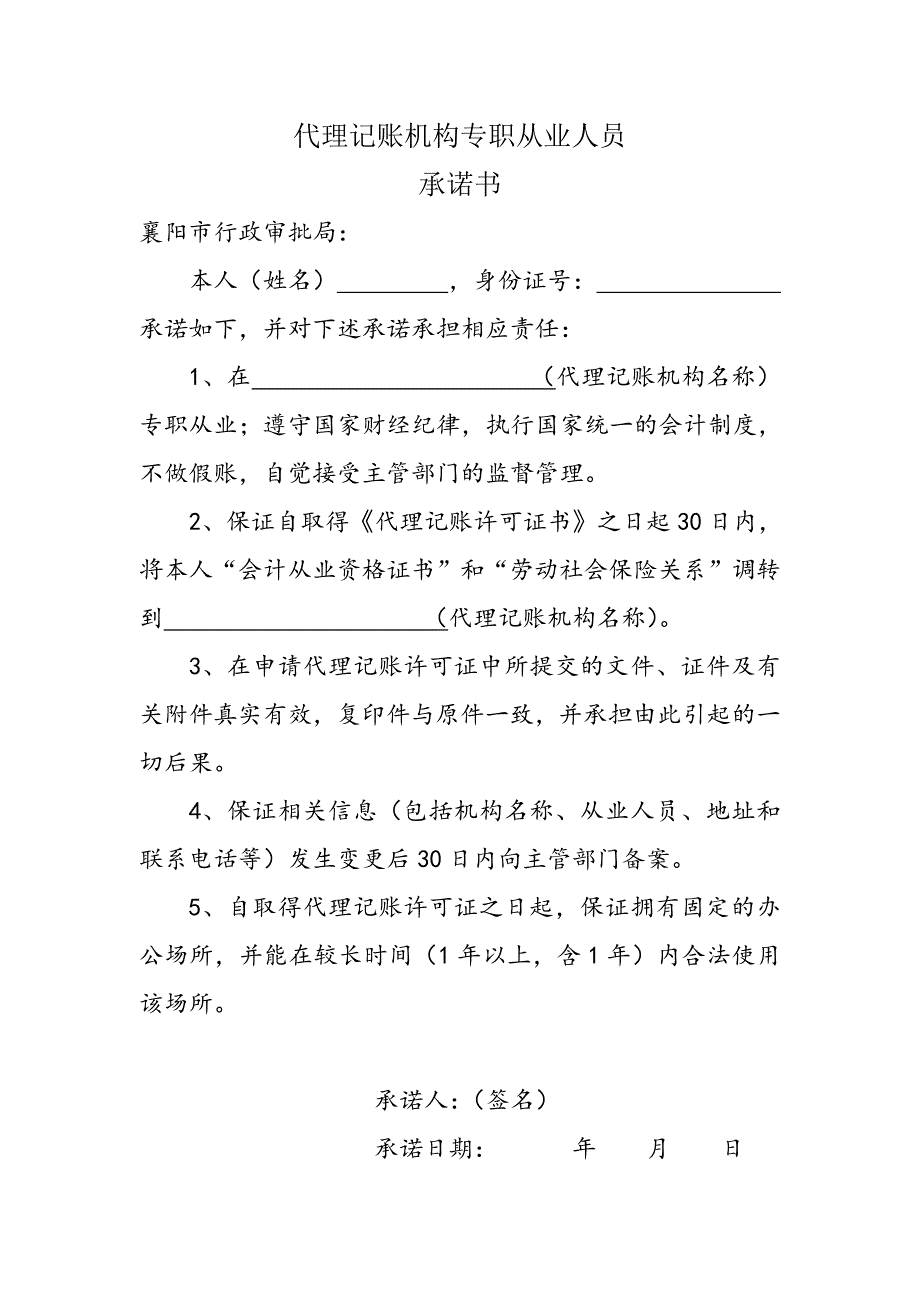 代理记账机构专职从业人员
承诺书
襄阳市行政审批局：
本人（姓名）________，身份证号：______________
承诺如下，并对下述承诺承担相应责任：
1、在______________________（代理记账机构名称）
专职从业；遵守国家财经纪律，执行国家统一的会计制度，
不做假账，自觉接受主管部门的监督管理。
2、保证自取得《代理记账许可证书》之日起30日内，
将本人“会计从业资格证书”和“劳动社会保险关系”调转
到____________________（代理记账机构名称）。
3、在申请代理记账许可证中所提交的文件、证件及有
关附件真实有效，复印件与原件一致，并承担由此引起的一
切后果。
4、保证相关信息（包括机构名称、从业人员、地址和
联系电话等）发生变更后30日内向主管部门备案。
5、自取得代理记账许可证之日起，保证拥有固定的办
公场所，并能在较长时间（1年以上，含1年）内合法使用
该场所。
承诺人：（签名）
承诺日期： 年 月 日